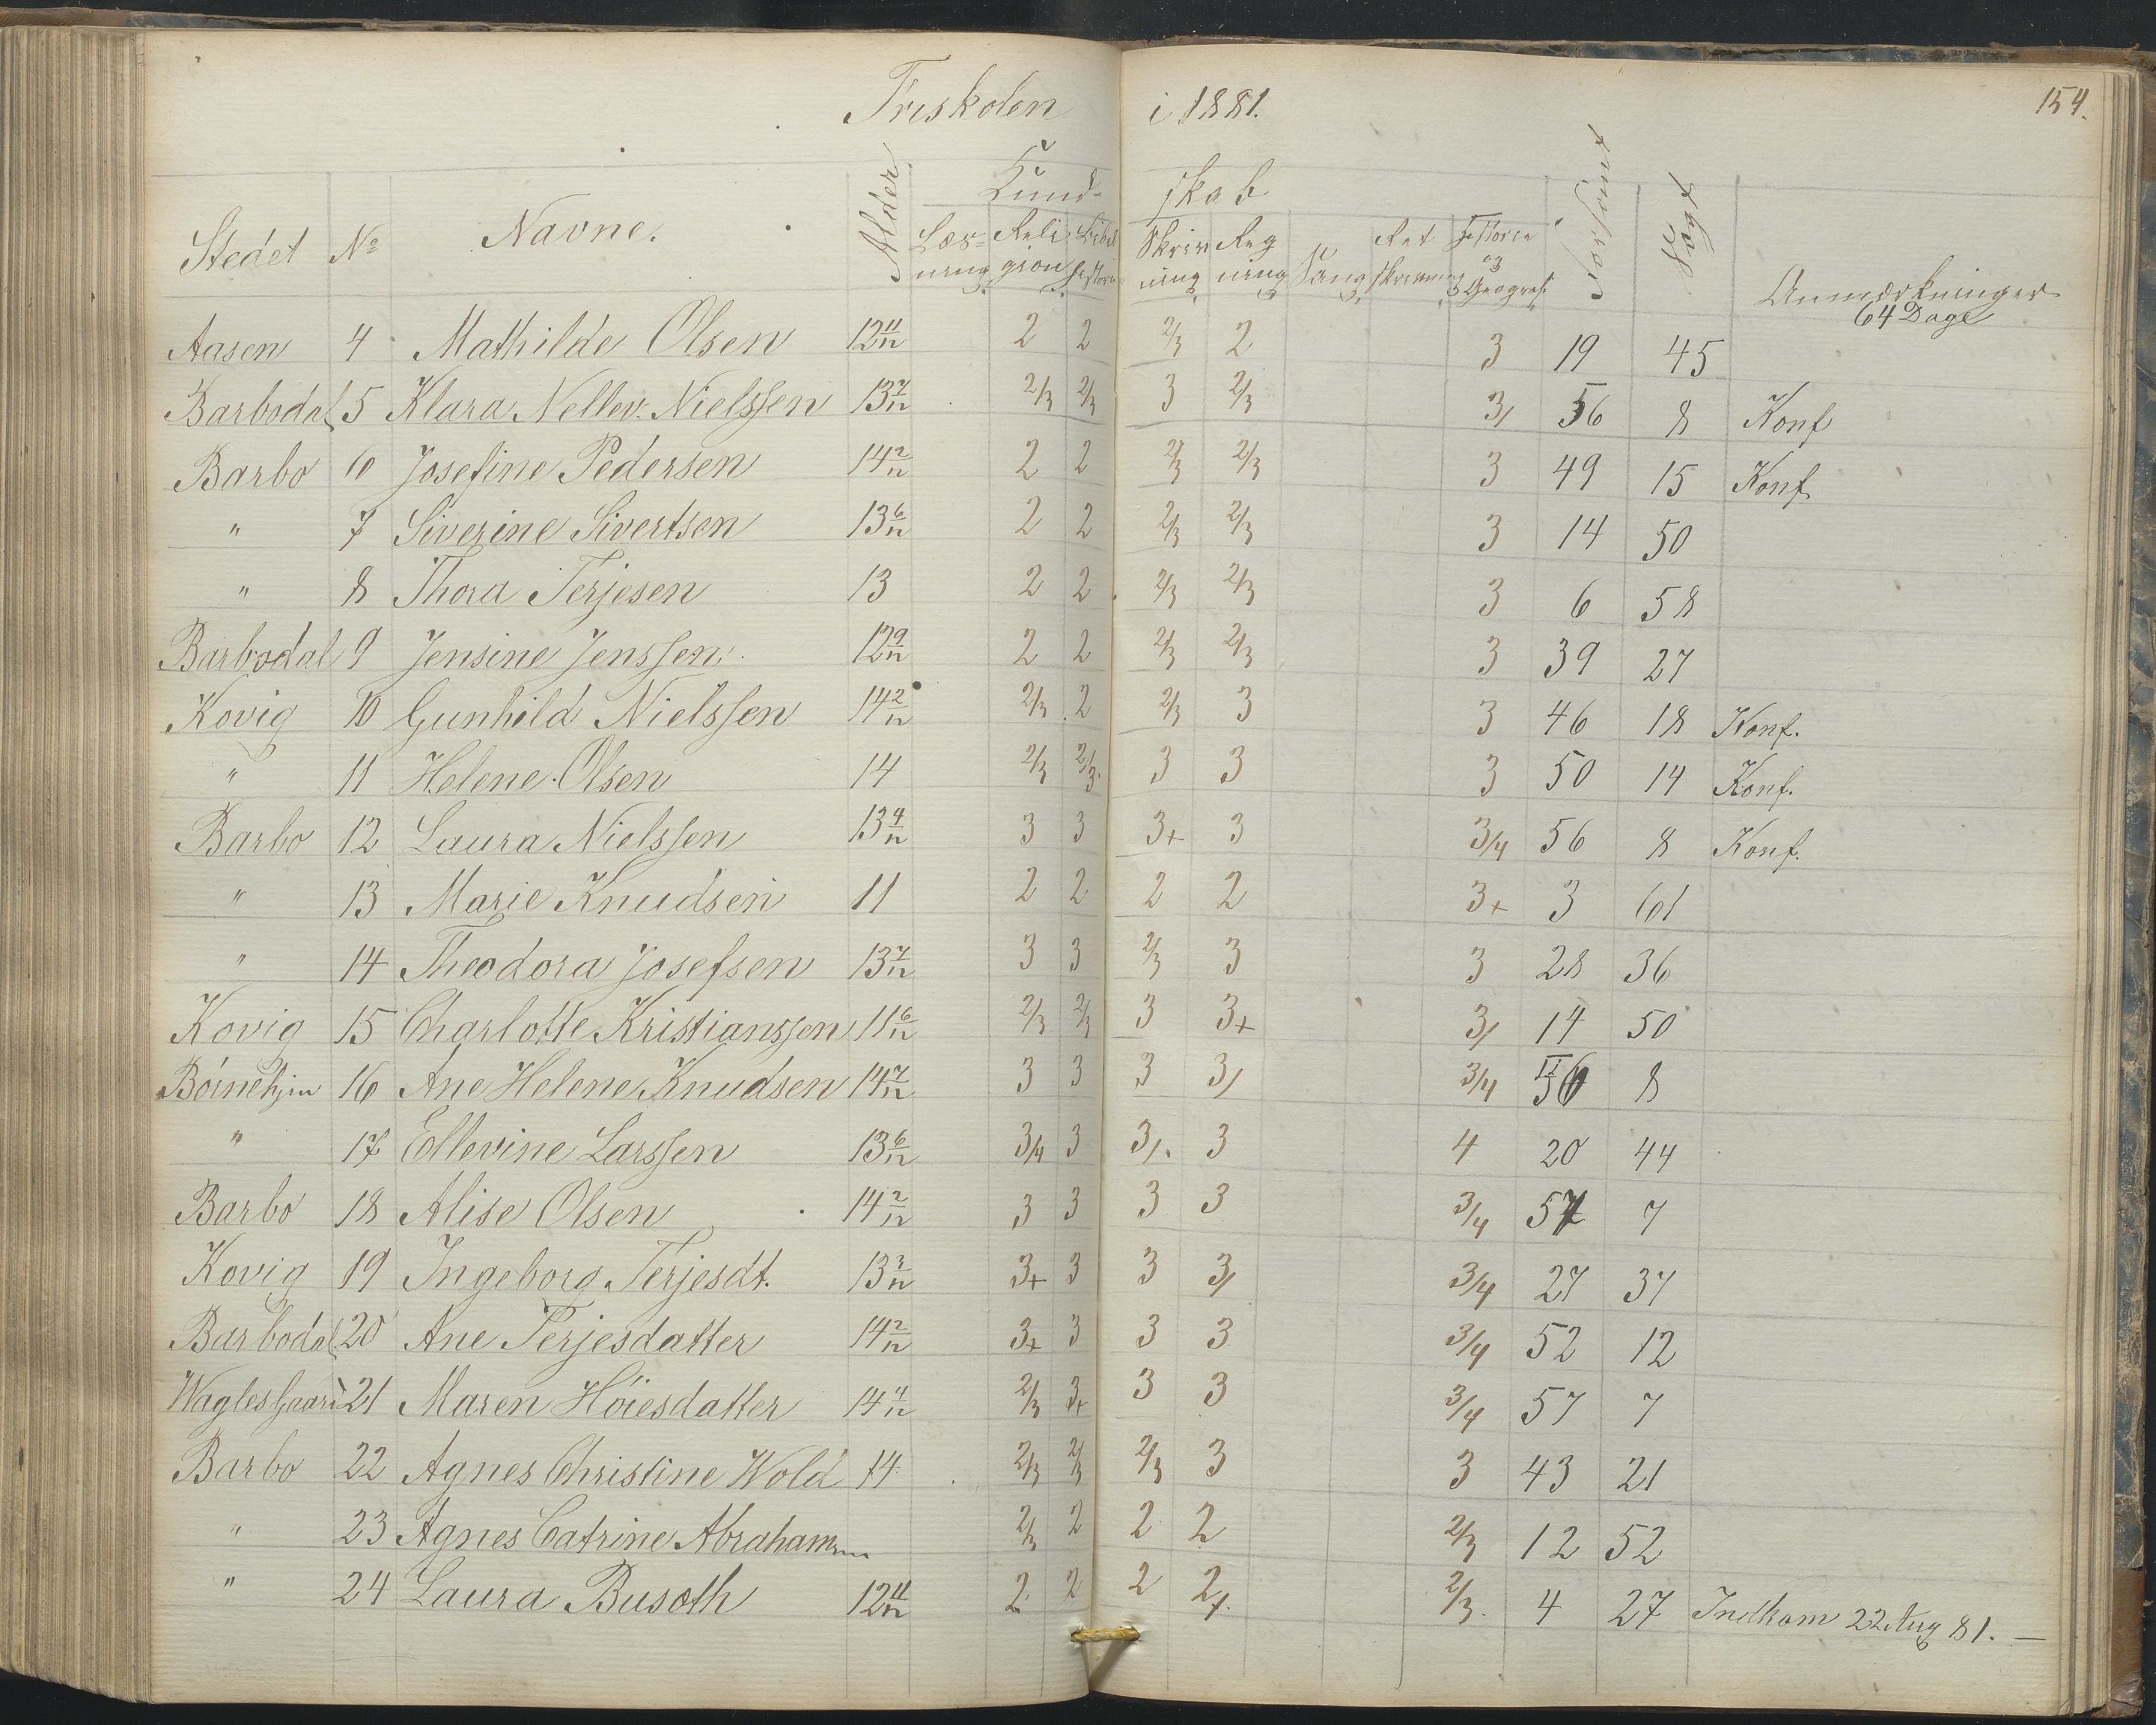 Friskolen i 1881. 154.
Stedet No Navne. Alder Kund- skab Forsømt Søgt Anmærkninger
Læs- Reli Bibel Skriv Reg Sang Ret Historie
ning gion historie ning ning skrivning og Geograf.
64 Dage
Aasen 4 Mathilde Olsen 12 11/12 2 2 2/3 2 3 19 45
Barbodal 5 Klara Nellev. Nielssen 13 7/12 2/3 2/3 3 2/3 3/ 56 8 Konf
Barbo 6 Josefine Pedersen 14 2/12 2 2 2/3 2/3 3 49 15 Konf
" 7 Siverine Sivertsen 13 6/12 2 2 2/3 2/3 3 14 50
" 8 Thora Terjesen 13 2 2 2/3 2/3 3 6 58
Barbodal 9 Jensine Jenssen 12 9/12 2 2 2/3 2/3 3 39 27
Kovig 10 Gunhild Nielssen 14 2/12 2/3 2 2/3 3 3 46 18 Konf.
" 11 Helene Olsen 14 2/3 2/3 3 3 3 50 14 Konf.
Barbo 12 Laura Nielssen 13 4/12 3 3 3+ 3 3/4 56 8 Konf.
" 13 Marie Knudsen 11 2 2 2 2 3+ 3 61
" 14 Theodora Josefsen 13 7/12 3 3 2/3 3 3 28 36
Kovig 15 Charlotte Kristianssen 11 6/12 2/3 2/3 3 3+ 3/ 14 50
Børnehjm 16 Ane Helene Knudsen 14 7/12 3 3 3 3/ 3/4 56 8
" 17 Ellevine Larssen 13 6/12 3/4 3 3/. 3 4 20 44
Barbo 18 Alise Olsen 14 2/12 3 3 3 3 3/4 57 7
Kovig 19 Ingeborg Terjesdt. 13 3/12 3+ 3 3 3/ 3/4 27 37
Barbodal 20 Ane Terjesdatter 14 2/12 3+ 3 3 3 3/4 52 12
Waglesgaard 21 Maren Höiesdatter 14 4/12 2/3 3+ 3 3 3/4 57 7
Barbo 22 Agnes Christine Wold 14 2/3 2/3 2/3 3 3 43 21
" 23 Agnes Catrine Abrahamsen 2/3 2 2 2 2/3 12 52
" 24 Laura Busoth 12 11/12 2 2 2 2/. 2/3. 4 27 Indkom 22 Aug 81. —